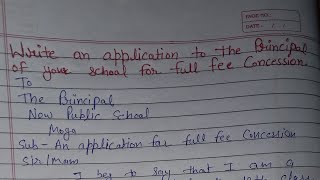 PAGE NO.:
DATE: / /
Write an application to the Principal
of your school for full fee Concession.
To
The Principal
New Public School
Moga
Sub- An application for full fee Concession
Sir/mam
I beg to say that I am a
class